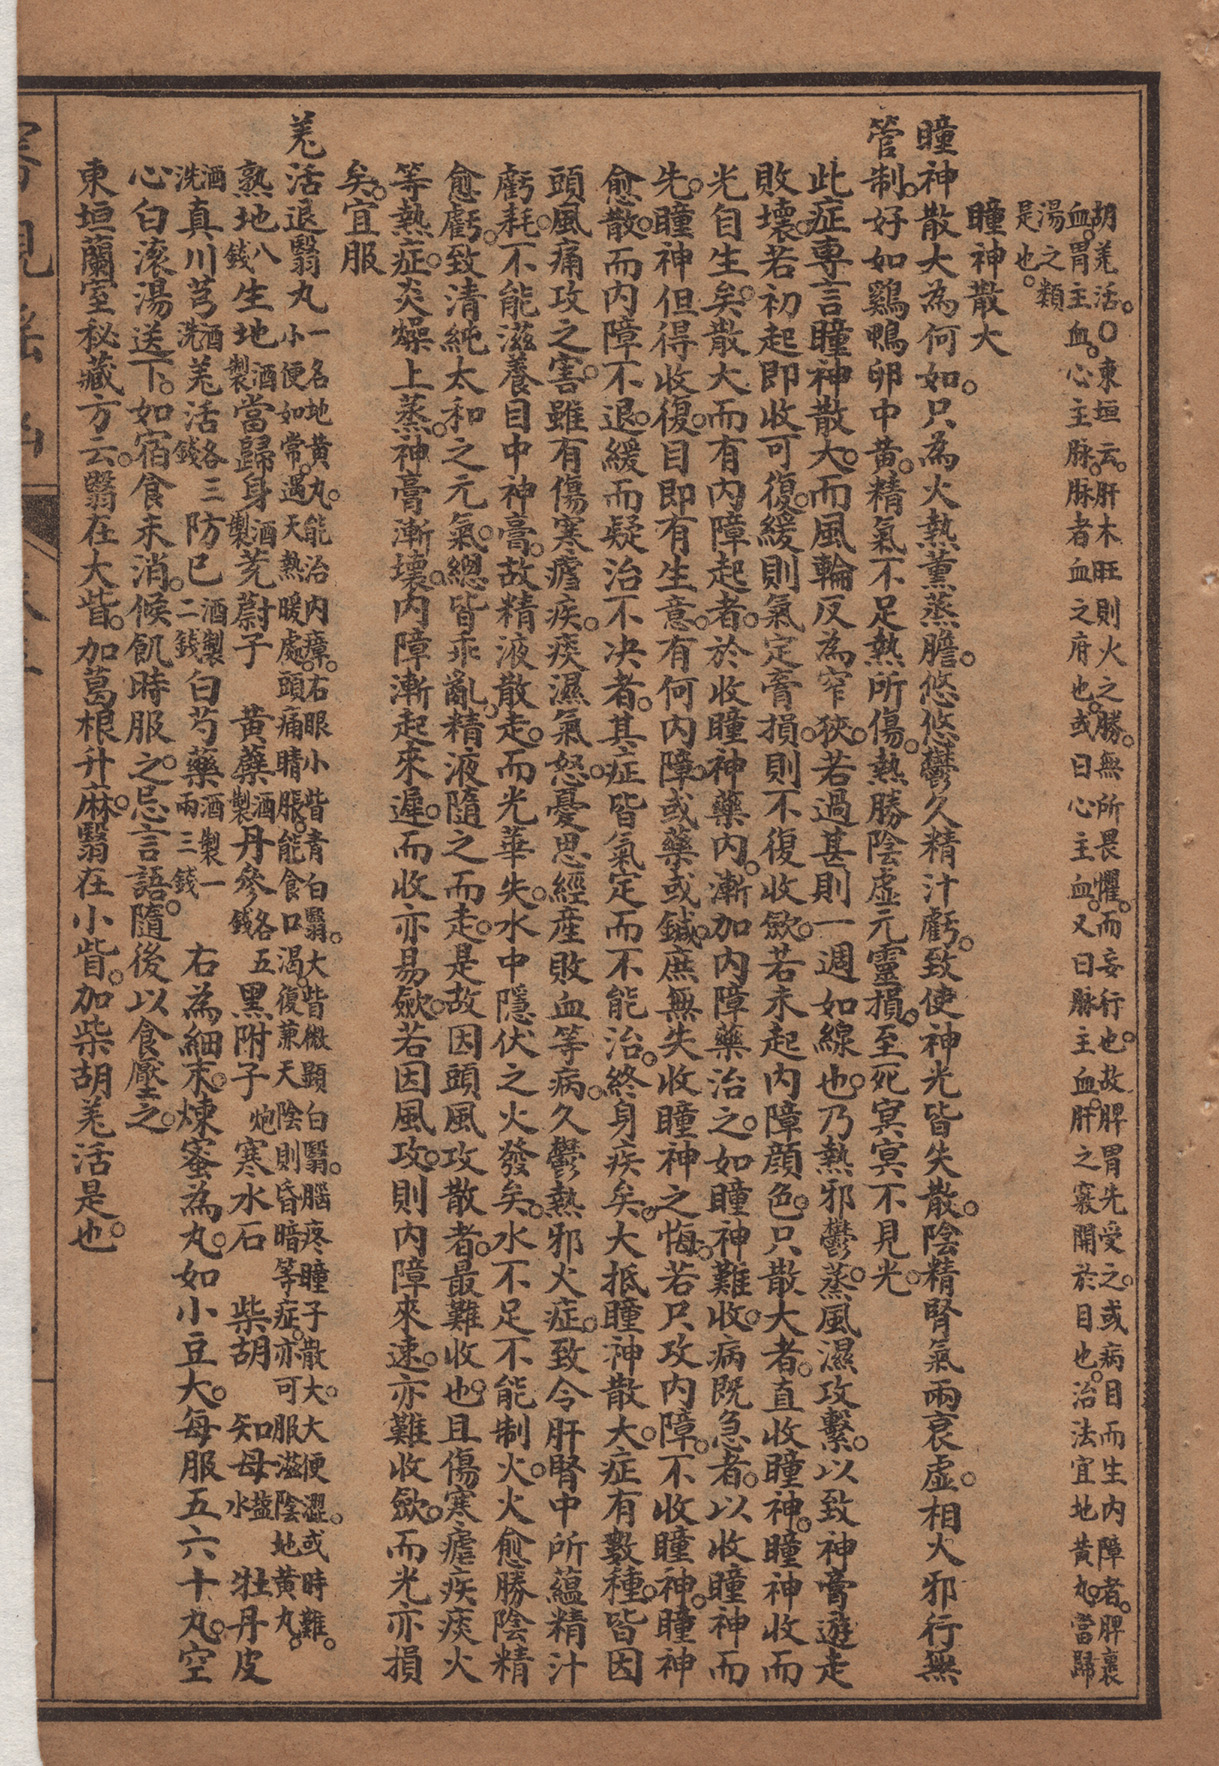 胡羗活。○東垣云。肝木旺則火之勝。無所畏懼。而妄行也。故脾胃先受之。或病目而生内障者。脾裏
血。胃主血。心主脉。脉者血之府也。或曰心主血。又曰脉主血。肝之竅開於目也。治法宜地黄丸。當歸
湯之類
是也。
瞳神散大
瞳神散大為何如。只為火熱薰蒸膽。悠悠鬱久精汁虧。致使神光皆失散。陰精腎氣兩衰虚。相火邪行無
管制。好如鷄鴨卵中黄。精氣不足熱所傷。熱勝陰虚元靈損。至死冥冥不見光。
此症専言瞳神散大。而風輪反為窄狹。若過甚則一週如線也。乃熱邪鬱蒸。風濕攻繫。以致神膏遊走
敗壞。若初起即收可復。緩則氣定膏損。則不復收歛。若未起内障顔色。只散大者。直收瞳神。瞳神收而
光自生矣。散大而有内障起者。於收瞳神藥内。漸加内障藥治之。如瞳神難收。病既急者。以收瞳神而
先。瞳神但得收復。目即有生意。有何内障。或藥或鍼。庶無失收瞳神之悔。若只攻内障。不收瞳神。瞳神
愈散。而内障不退。緩而疑治不决者。其症皆氣定而不能治。終身疾矣。大抵瞳神散大。症有數種。皆因
頭風痛攻之害。雖有傷寒瘧疾。痰濕氣怒。憂思經産敗血等病。久鬱熱邪火症。致令肝腎中所蘊精汁
虧耗。不能滋養目中神膏。故精液散走。而光華失。水中隱伏之火發矣。水不足不能制火。火愈勝陰精
愈虧。致清純太和之元氣。總皆乖亂。精液隨之而走。是故因頭風攻散者。最難收也。且傷寒瘧疾痰火
等熱症。炎燥上蒸。神膏漸壞。内障漸起。來遲。而收亦易歛。若因風攻。則内障來速。亦難收歛。而光亦損
矣。宜服
羗活退翳丸一名地黄丸。能治内瘴。右眼小眥青白翳。大眥微顯白翳。腦疼瞳子散大。大便澀。或時難。
小便如常。遇天熱暖處。頭痛睛脹。能食口渴。復兼天陰則昏暗等症。亦可服滋陰地黄丸。
熟地八錢生地酒製當歸身酒製茺蔚子 黄蘗酒製丹參各五錢黑附子炮寒水石 柴胡 知母盐水 牡丹皮
酒洗真川芎酒洗羗活各三錢防已酒製二錢白芍藥酒製一兩三錢 右為細末。煉蜜為丸。如小豆大。每服五六十丸。空
心白滚湯送下。如宿食未消。候飢時服之。忌言語。隨後以食壓之。
東垣蘭室秘藏方云。翳在大眥。加葛根升麻。翳在小眥。加柴胡羗活是也。